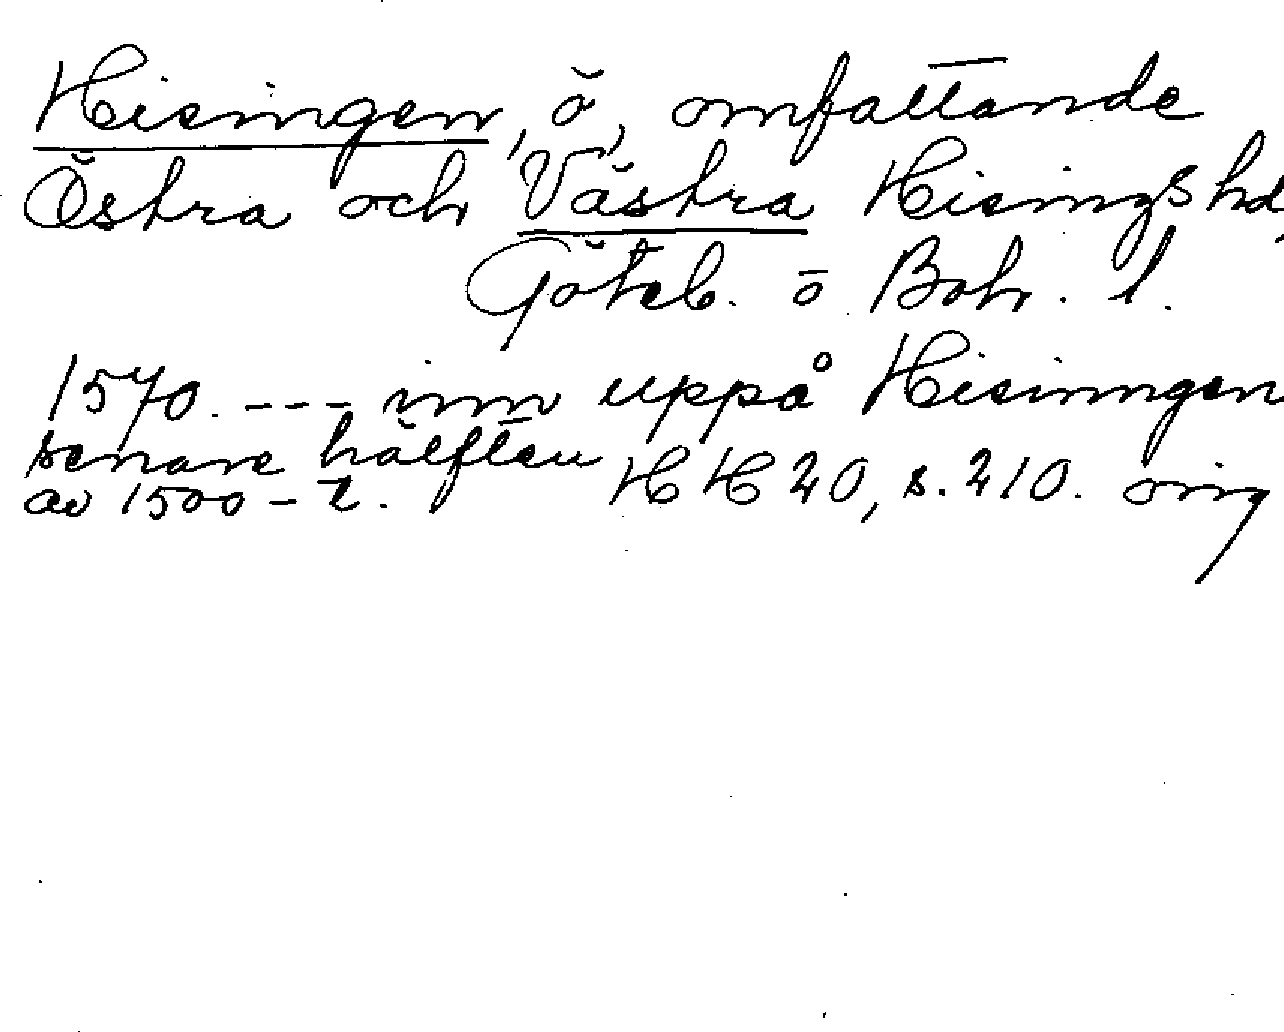 Hisingen, ö, omfattande
Östra och Västra Hisings hd,
Göteb. o Boh. l.
1570. --- inn uppå Hisinngen
senare hälften
av 1500-t. HH 20, s. 210. orig